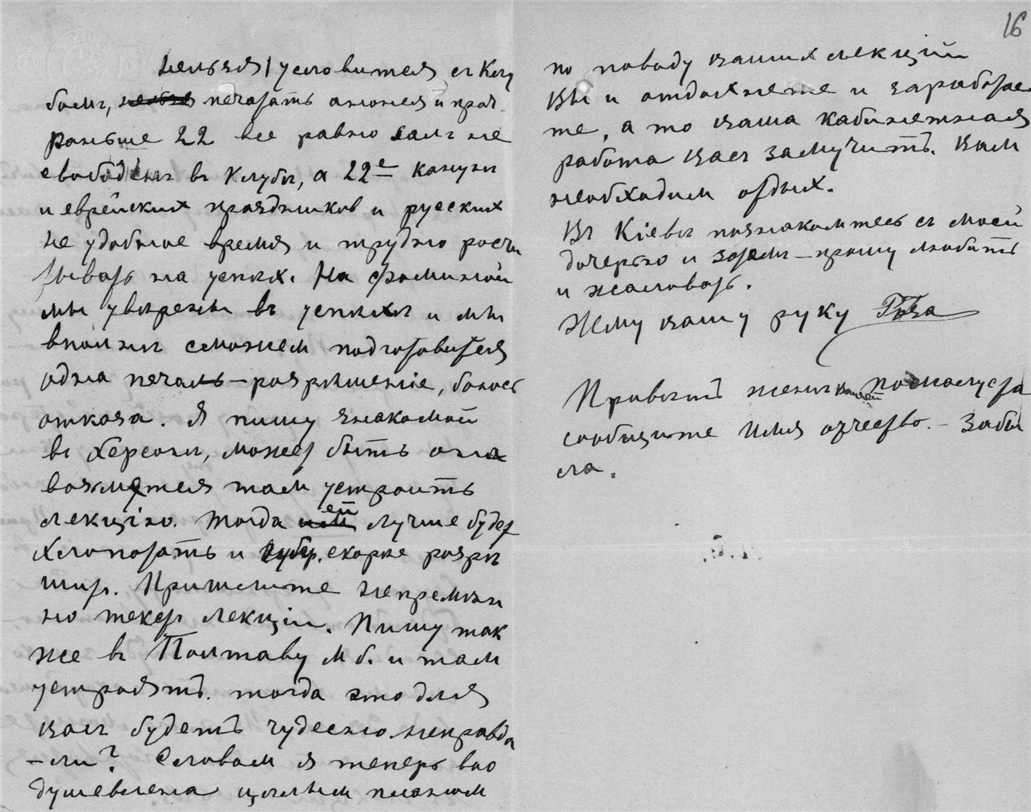 нельзя) условиться съ Клу
бомъ, нельзя печатать анонса и проч.
Раньше 22 все равно залъ не
свободенъ въ Клубѣ, а 22е канунъ
и еврейскихъ праздниковъ и русскихъ
не удобное время и трудно расчи
тывать на успѣх. На Фоминой
мы увѣрены въ успѣхѣ и мы
вполнѣ сможемъ подготовиться
одна печаль – разрѣшеніе, боюсь
отказа. Я пишу знакомой
въ Херсонъ, может быть она
возмется там устроить
лекцію. Тогда ей лучше будет
хлопотать и губ. скорѣе разрѣ
шит. Пришлите непремѣн
но текст лекціи. Пишу так
же въ Полтаву м. б. и там
устроятъ. тогда это для
васъ будетъ чудесно неправда
– ли? Словом я теперь вօ
душевлена цѣлымъ планом
16
по поводу ваших лекцій
Вы и отдохнете и заработае
те, а то ваша кабинетная
работа васъ замучитъ. Вам
необходим отдых.
Въ Кіевѣ познакомтесь съ моей
дочерью и зятем – прошу любить
и жаловать.
Жму вашу руку
Привѣтъ женѣ вашей пожалуста
сообщите имя отчество. – Забы
ла.